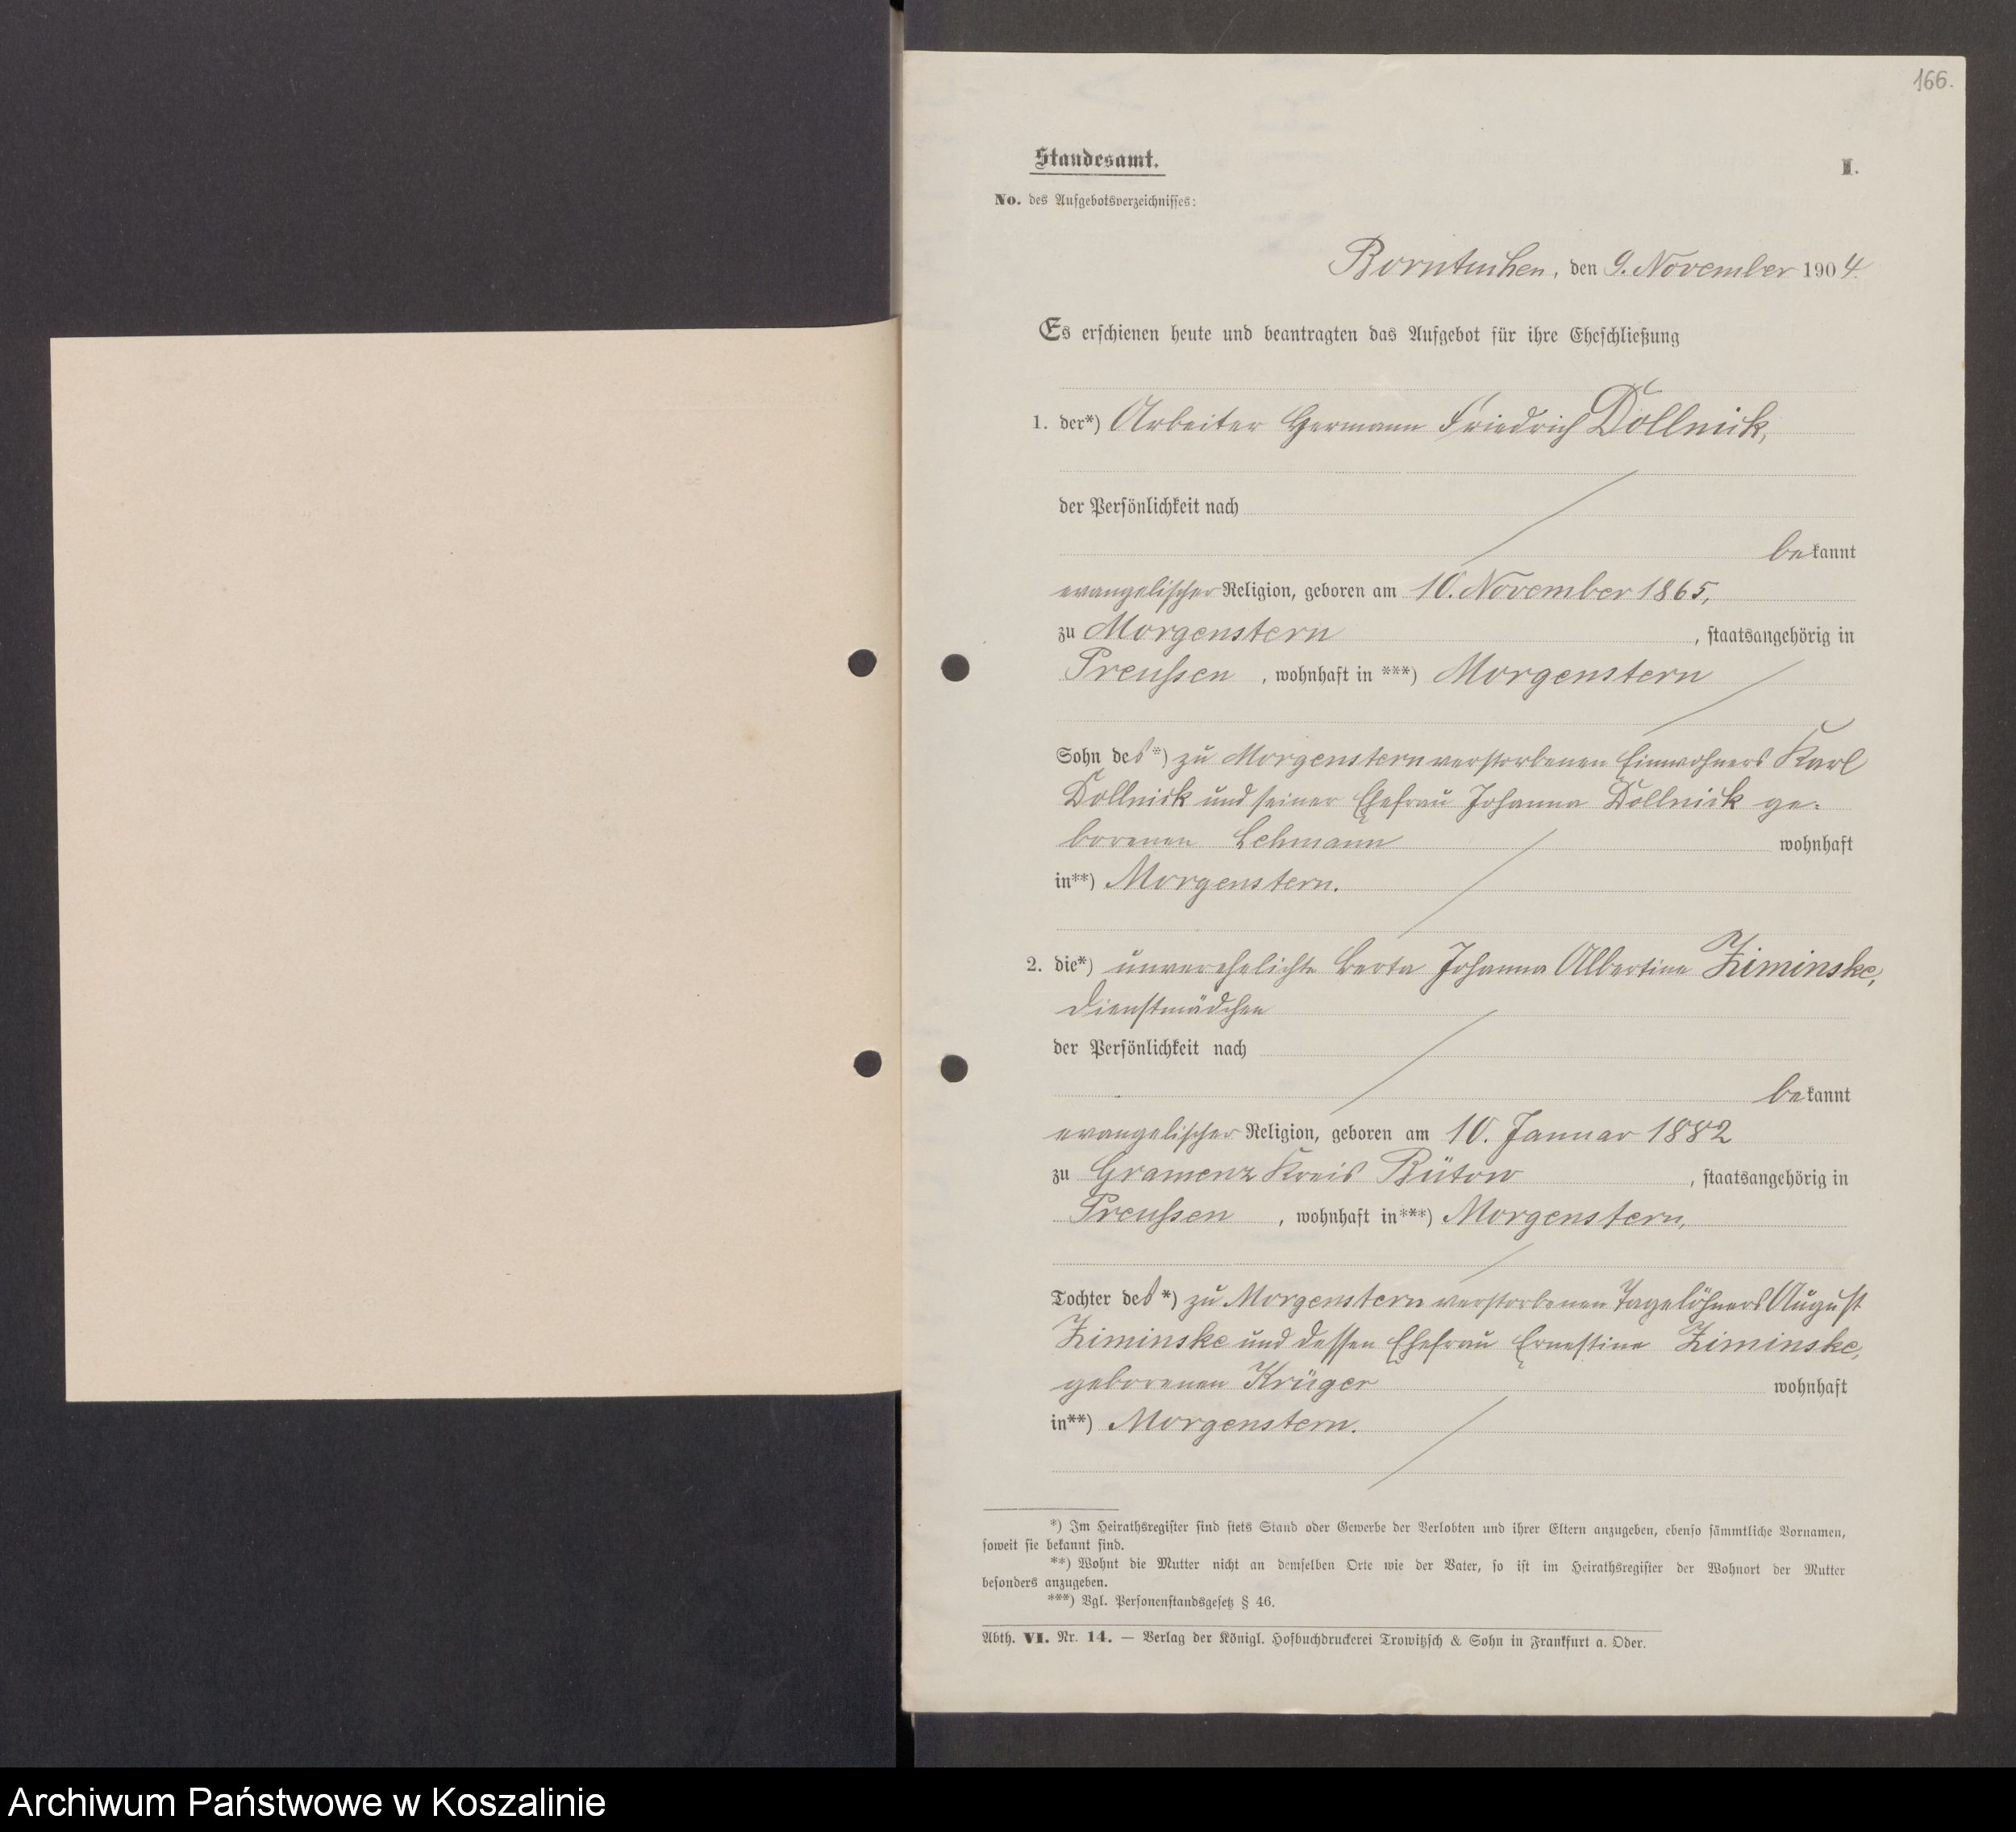 166.
Standesamt.
I.
No. des Aufgebotsverzeichnisses:
Borntuchen, den 9. November 1904.
Es erschienen heute und beantragten das Aufgebot für ihre Eheschließung
1. der*) Arbeiter Hermann Friedrich Dollnick,
der Persönlichkeit nach
bekannt
evangelischer Religion, geboren am 10. November 1865,
zu Morgenstern, staatsangehörig in
Preußen, wohnhaft in ***) Morgenstern
Sohn des *) zu Morgenstern verstorbenen Einwohners Karl
Dollnick und seiner Ehefrau Johanna Dollnick ge-
borenen Lehmann wohnhaft
in**) Morgenstern.
2. die*) unverehelichte Berta Johanna Albertine Ziminske,
Dienstmädchen
der Persönlichkeit nach
bekannt
evangelischer Religion, geboren am 10. Januar 1882
zu Gramenz Kreis Bütow, staatsangehörig in
Preußen, wohnhaft in***) Morgenstern,
Tochter des *) zu Morgenstern verstorbenen Tagelöhners August
Ziminske und dessen Ehefrau Ernestine Ziminske,
geborenen Krüger wohnhaft
in**) Morgenstern.
*) Im Heirathsregister sind stets Stand oder Gewerbe der Verlobten und ihrer Eltern anzugeben, ebenso sämmtliche Vornamen,
soweit sie bekannt sind.
**) Wohnt die Mutter nicht an demselben Orte wie der Vater, so ist im Heirathsregister der Wohnort der Mutter
besonders anzugeben.
***) Vgl. Personenstandsgesetz § 46.
Abth. VI. Nr. 14. — Verlag der Königl. Hofbuchdruckerei Trowitzsch & Sohn in Frankfurt a. Oder.
Archiwum Państwowe w Koszalinie